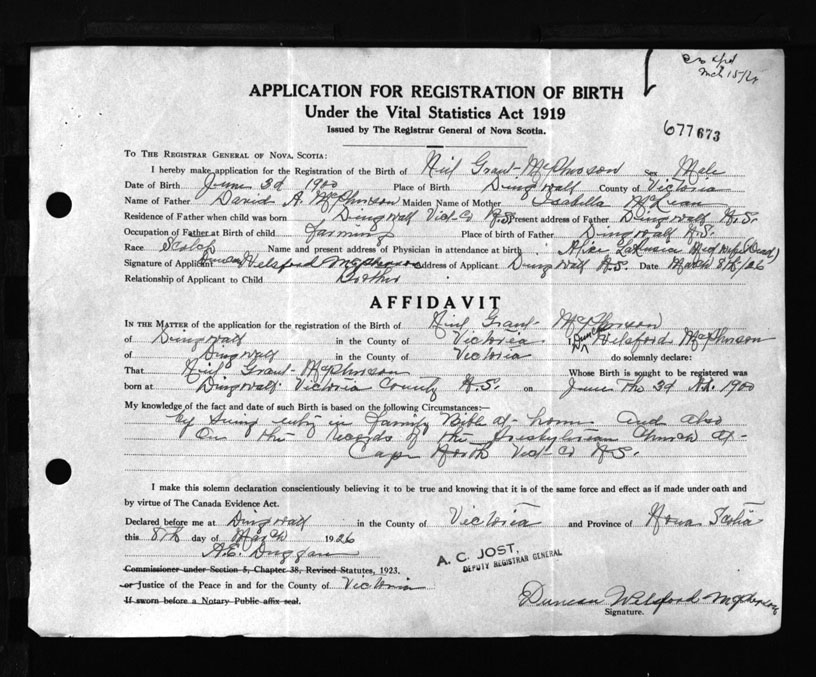 Mch 15/26
APPLICATION FOR REGISTRATION OF BIRTH
Under the Vital Statistics Act 1919
Issued by The Registrar General of Nova Scotia.
677673
To The Registrar General of Nova Scotia:
I hereby make application for the Registration of the Birth of Neil Grant McPherson Sex Male
Date of Birth June 3d 1900 Place of Birth Dingwall County of Victoria
Name of Father David A. McPherson Maiden Name of Mother Isabella McLean
Residence of Father when child was born Dingwall Vict Co N.S. Present address of Father Dingwall N.S.
Occupation of Father at Birth of child farming Place of birth of Father Dingwall N.S.
Race Scotch Name and present address of Physician in attendance at birth (Dead)
Signature of Applicant Duncan Welsford McPherson Address of Applicant Dingwall N.S. Date March 8th/26
Relationship of Applicant to Child Brother
AFFIDAVIT
In the Matter of the application for the registration of the Birth of Neil Grant McPherson
of Dingwall in the County of Victoria I, Duncan Welsford McPherson
of Dingwall in the County of Victoria do solemnly declare:
That Neil Grant McPherson Whose Birth is sought to be registered was
born at Dingwall Victoria County N.S. on June The 3d 1900
My knowledge of the fact and date of such Birth is based on the following Circumstances:—
By Seing entry in family Bible at home and also
On the Records of the Presbyterian Church at
Cape North Vict Co N.S.
I make this solemn declaration conscientiously believing it to be true and knowing that it is of the same force and effect as if made under oath and
by virtue of The Canada Evidence Act.
Declared before me at Dingwall in the County of Victoria and Province of Nova Scotia
this 8th day of March 1926
A.E. Duggan
A. C. JOST,
DEPUTY REGISTRAR GENERAL
Commissioner under Section 5, Chapter 38, Revised Statutes, 1923.
or Justice of the Peace in and for the County of Victoria
If sworn before a Notary Public affix seal.
Duncan Welsford McPherson
Signature.